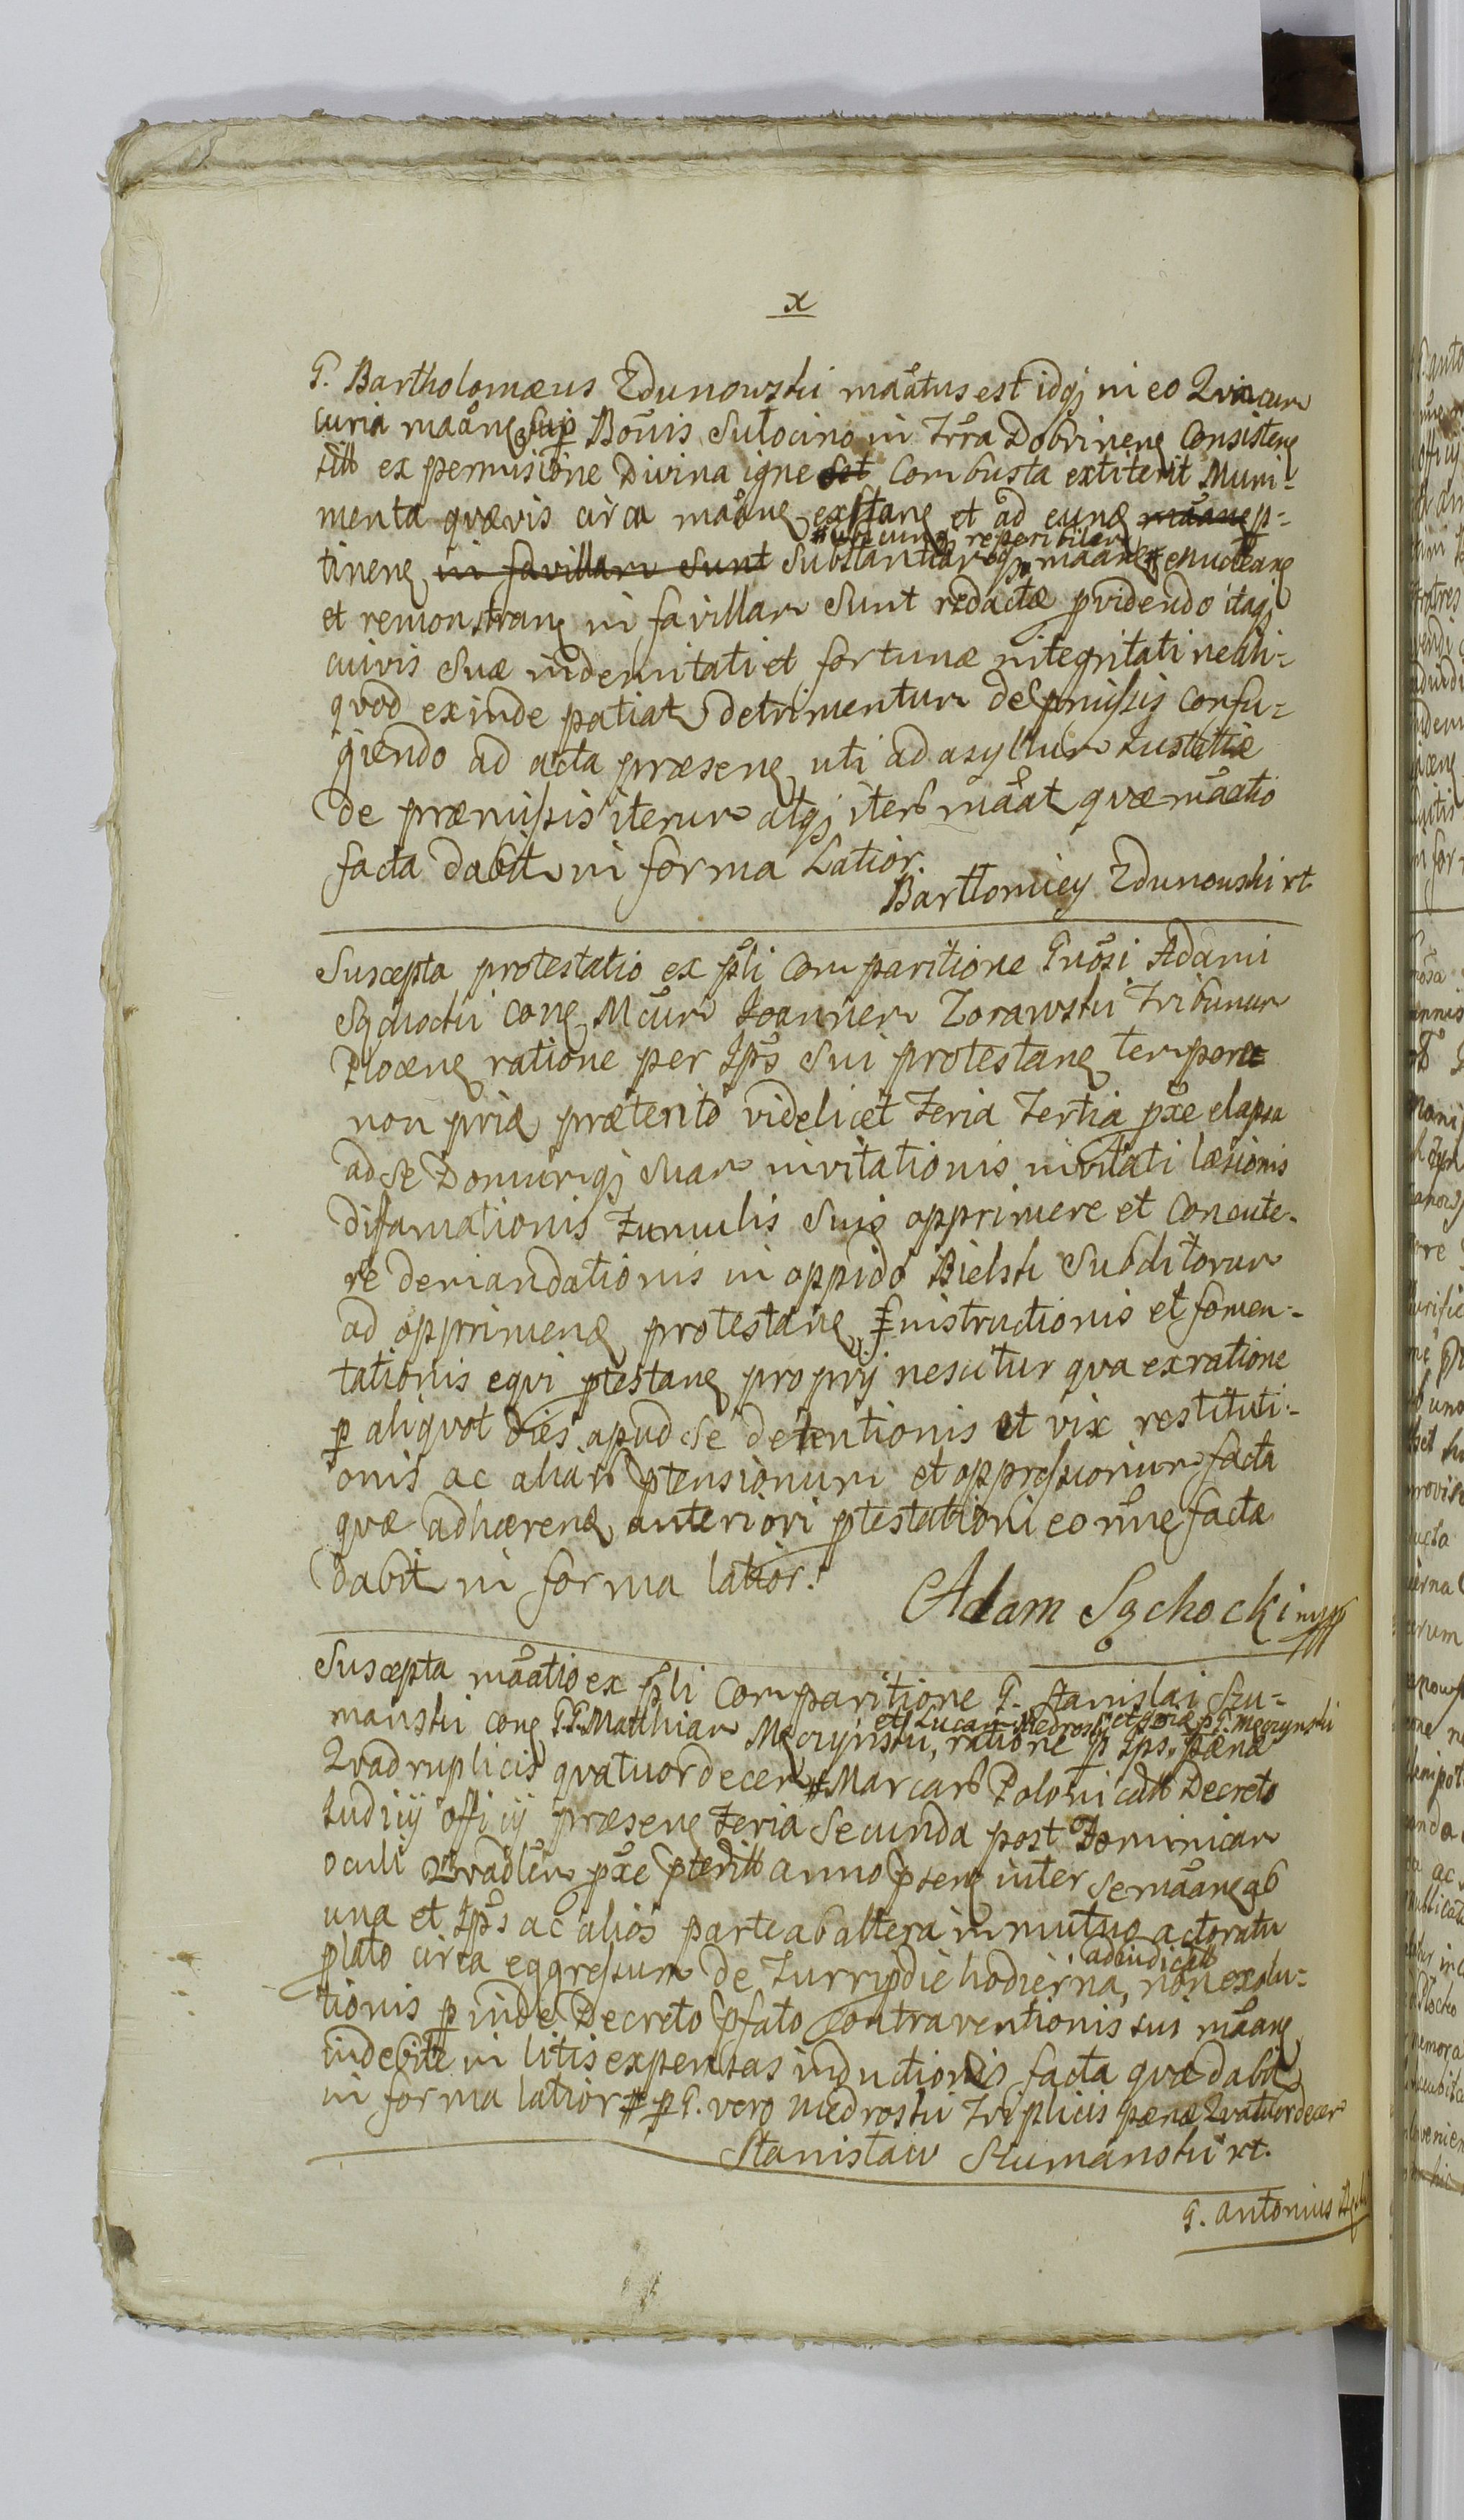 x
G. Bartholomæus Zdunowski mãatus est idq; in eo Qvia cum
curia mãaneӡ sup Bonis Sulocino in Trra Dobrinenӡ Consistenӡ
sitt ex permisione Divina igne Set Combusta extiterit Muni-
menta qvævis circa mãanӡ exstanӡ et ad eundӡ mãane p-
# ubicunq; reperibilem
tinenӡ in favillam sunt Substantiamq; mãanӡ # enucleanӡ
et remonstranӡ in favillam Sunt redactæ pvidendo itaq;
cuivis Suæ indemnitati et fortunæ integritati ne ali-
qvod exinde patiat detrimentum de pmissis Confu-
giendo ad acta præsenӡ uti ad asyllum Justitiæ
de præmissis iterum atq; iterũ mãat qvæ mãatio
facta dabit in forma Latior.
Bartłomiey Zdunowski rt
Suscepta protestatio ex pli Comparitione Gnosi Adami
Sąchocki conӡ Mcum Joannem Zorawski Tribunum
Plocenӡ ratione per Jps Sui protestanӡ tempore
non pride præterito videlicet Feria Tertia pxe elapsa
ad Se Domumq; Suam invitationis invitati læsionis
diffamationis Famulis Suis opprimere et Concute-
re demandationis in oppido Bielsk Subditorum
ad opprimendӡ protestanӡ instructionis et fomen-
tationis eqvi ptestanӡ proprij nescitur qva ex ratione
p aliqvot dies apud se detentionis et vix restituti-
onis ac aliarũ ptensionum et oppressionum facta
qvæ adhærendӡ anteriori ptestationi eo nne factæ
dabit in forma latior.
Adam Sąchocki mpp
Suscepta mãatio ex pli Comparitione G. Stanislai Szu-
manski conӡ G.G. Matthiam Męczynski, ratione p Jps. pænæ
et Lucam Niedroski et soræ p G. Męczynski
Qvadruplicis qvatuordecem # Marcarũ Polonicalũ Decreto
Judicij officij præsenӡ Feria Secunda post Dominicam
oculi Qvadlem pxe pteritt anno psenӡ inter se mãanӡ ab
una et Jps ac alios parte ab altera in mutuo actoratu
plato circa eggressum de Turri p die hodierna, non exolu-
adiudicatt
tionis p inde Decreto pfato Contraventionis sui mãanӡ
indebite in litis expensas inductionis facta qvæ dabit
in forma latior # p G. vero Niedroski Triplicis pænæ Qvatuordecem
Stanisław Szumanski rt.
G. Antonius